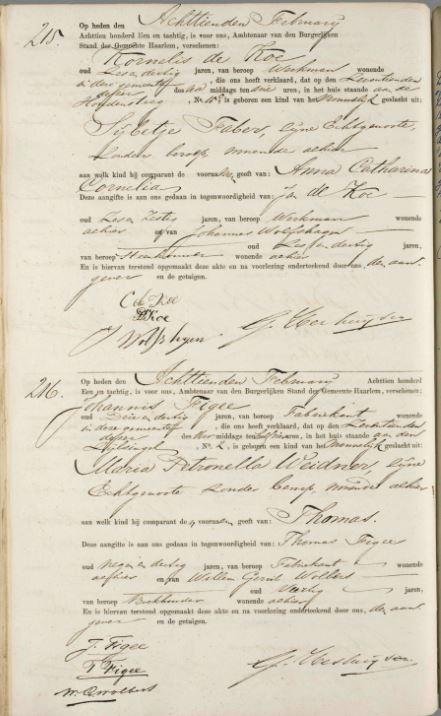 215. Op heden den Achttienden February
Achttien honderd Een en tachtig, is voor ons, Ambtenaar van den Burgerlijken
Stand der Gemeente Haarlem, verschenen:
Kornelis de Koe
oud Zes en dertig jaren, van beroep Werkman wonende
in deze gemeente, die ons heeft verklaard, dat op den Zeventienden
dezer des middags ten drie uren, in het huis staande aan de
Houtmarkt, No. is geboren een kind van het Vrouwelijk geslacht uit:
Sijbetje Faber, zijne Echtgenoote,
zonder beroep, wonende alhier
aan welk kind hij comparant de voornamen geeft van: Anna Catharina
Cornelia
Deze aangifte is aan ons gedaan in tegenwoordigheid van: Jan de Koe
oud Zes en Zestig jaren, van beroep Werkman wonende
alhier en van Johannes Wolfshagen
oud Zes en dertig jaren,
van beroep wonende alhier
En is hiervan terstond opgemaakt deze akte en na voorlezing onderteekend door ons, den aan-
gever en de getuigen.
C de Koe
J d Koe
J Wolfshagen
216. Op heden den Achttienden February Achttien honderd
Een en tachtig, is voor ons, Ambtenaar van den Burgerlijken Stand der Gemeente Haarlem, verschenen:
Johannis Figee
oud Drie en dertig jaren, van beroep Fabriekant wonende
in deze gemeente, die ons heeft verklaard, dat op den Zeventienden
dezer des middags ten uren, in het huis staande aan den
No. 2, is geboren een kind van het Mannelijk geslacht uit:
Maria Petronella Weidner, zijne
Echtgenoote zonder beroep, wonende alhier
aan welk kind hij comparant de voornaam geeft van: Thomas.
Deze aangifte is aan ons gedaan in tegenwoordigheid van: Thomas Figee
oud Negen en dertig jaren, van beroep Fabriekant wonende
alhier en van Willem Gerrit Wolbers
oud Veertig jaren,
van beroep Boekhouder wonende alhier
En is hiervan terstond opgemaakt deze akte en na voorlezing onderteekend door ons, den aan-
gever en de getuigen.
J. Figee
T Figee
W. G. Wolbers